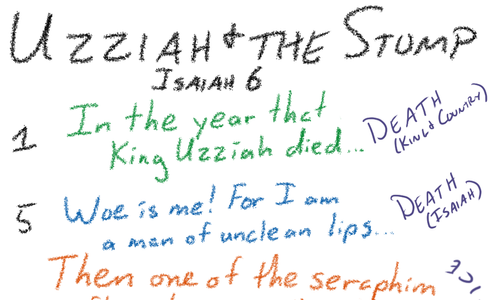 UZZIAH & THE STUMP
ISAIAH 6
1 In the year that
King Uzziah died...
DEATH
(KING & COUNTRY)
5 Woe is me! For I am
a man of unclean lips...
DEATH
(ISAIAH)
Then one of the seraphim